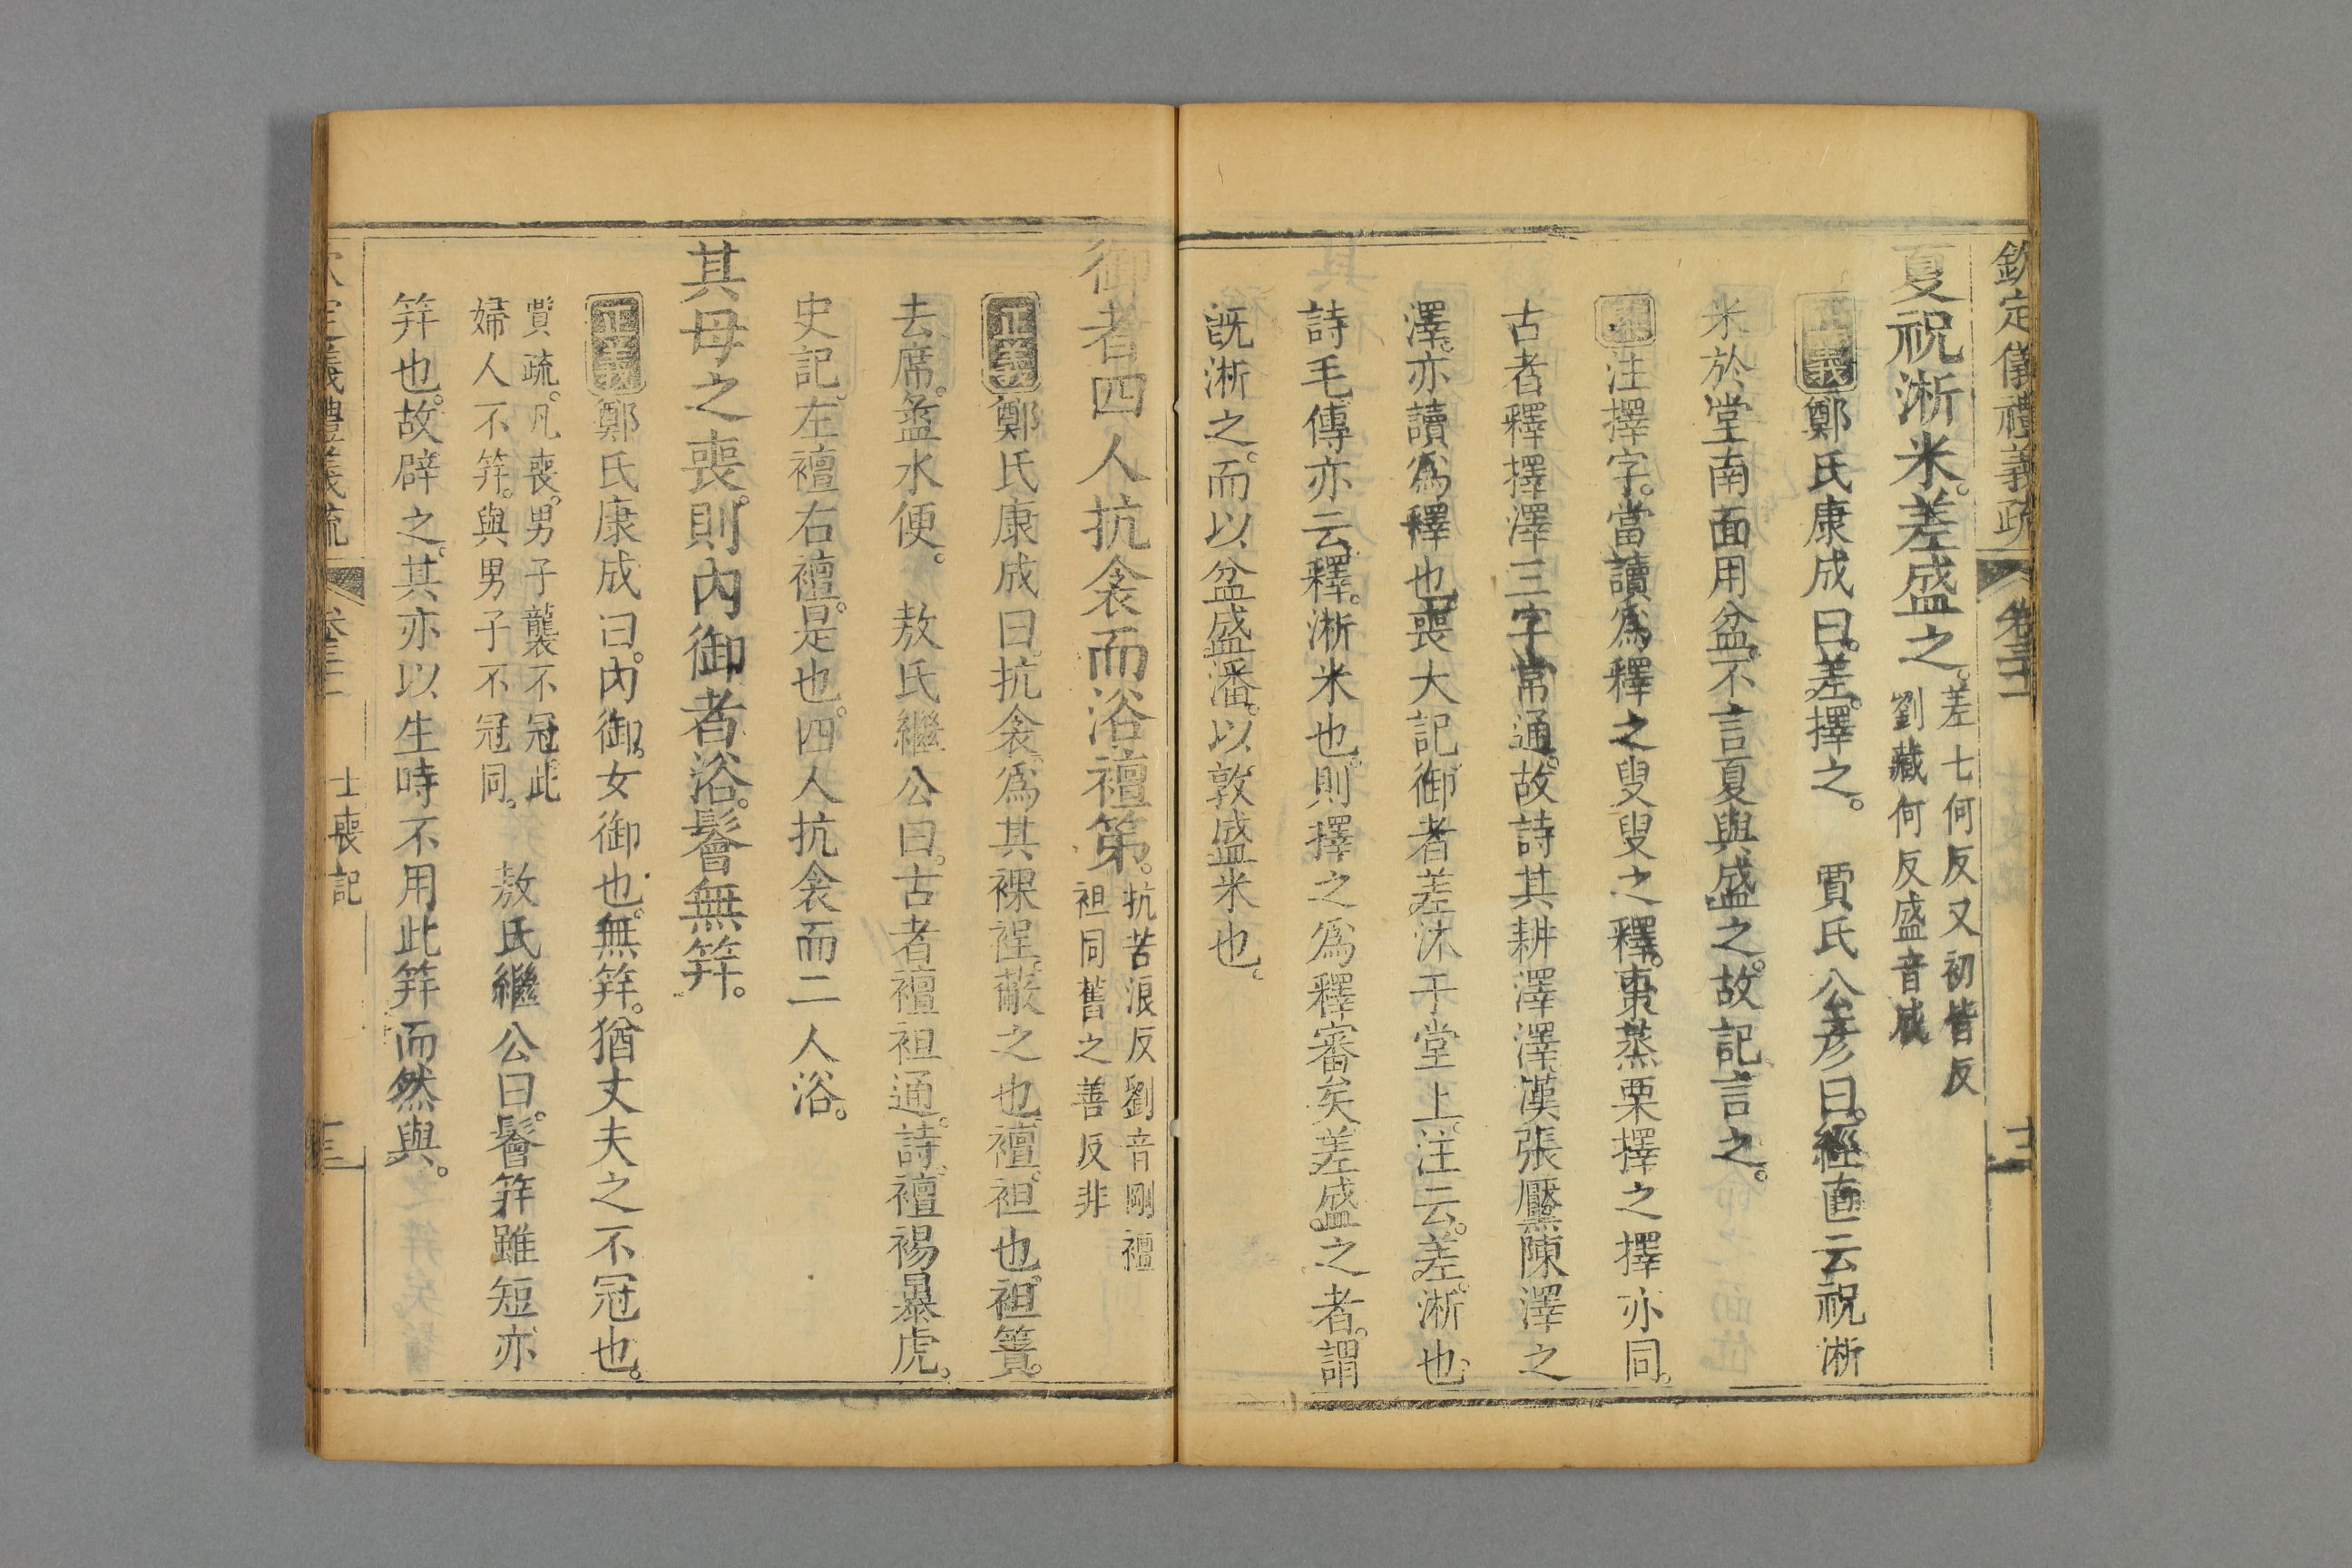 欽定儀禮義疏 卷三十二
夏祝淅米。差盛之。差七何反又初皆反
劉藏何反盛音成
正義鄭氏康成曰。差。擇之。 賈氏公彥曰。經直云祝淅
米於堂南面用盆。不言夏與盛之。故記言之。
案注擇字。當讀爲釋之叟叟之釋。棗蒸栗擇之擇亦同。
古者釋擇澤三字常通。故詩其耕澤澤。漢張黶陳澤之
澤。亦讀爲釋也。喪大記。御者差沐于堂上。注云。差。淅也。
詩毛傳亦云。釋。淅米也。則擇之爲釋審矣。差盛之者。謂
旣淅之。而以盆盛潘。以敦盛米也。
御者四人抗衾而浴襢第。抗苦浪反劉音剛襢
袒同舊之善反非
正義鄭氏康成曰。抗衾。爲其裸裎。蔽之也。襢。袒也。袒簀。
去席。盝水便。 敖氏繼公曰。古者襢袒通。詩。襢裼暴虎。
史記。左襢右襢。是也。四人抗衾而二人浴。
其母之喪。則內御者浴。鬠無筓。
正義鄭氏康成曰。內御。女御也。無筓。猶丈夫之不冠也。
賈疏。凡喪。男子襲不冠此
婦人不筓。與男子不冠同。 敖氏繼公曰。鬠筓雖短亦
筓也。故辟之。其亦以生時不用此筓而然與。
士喪記